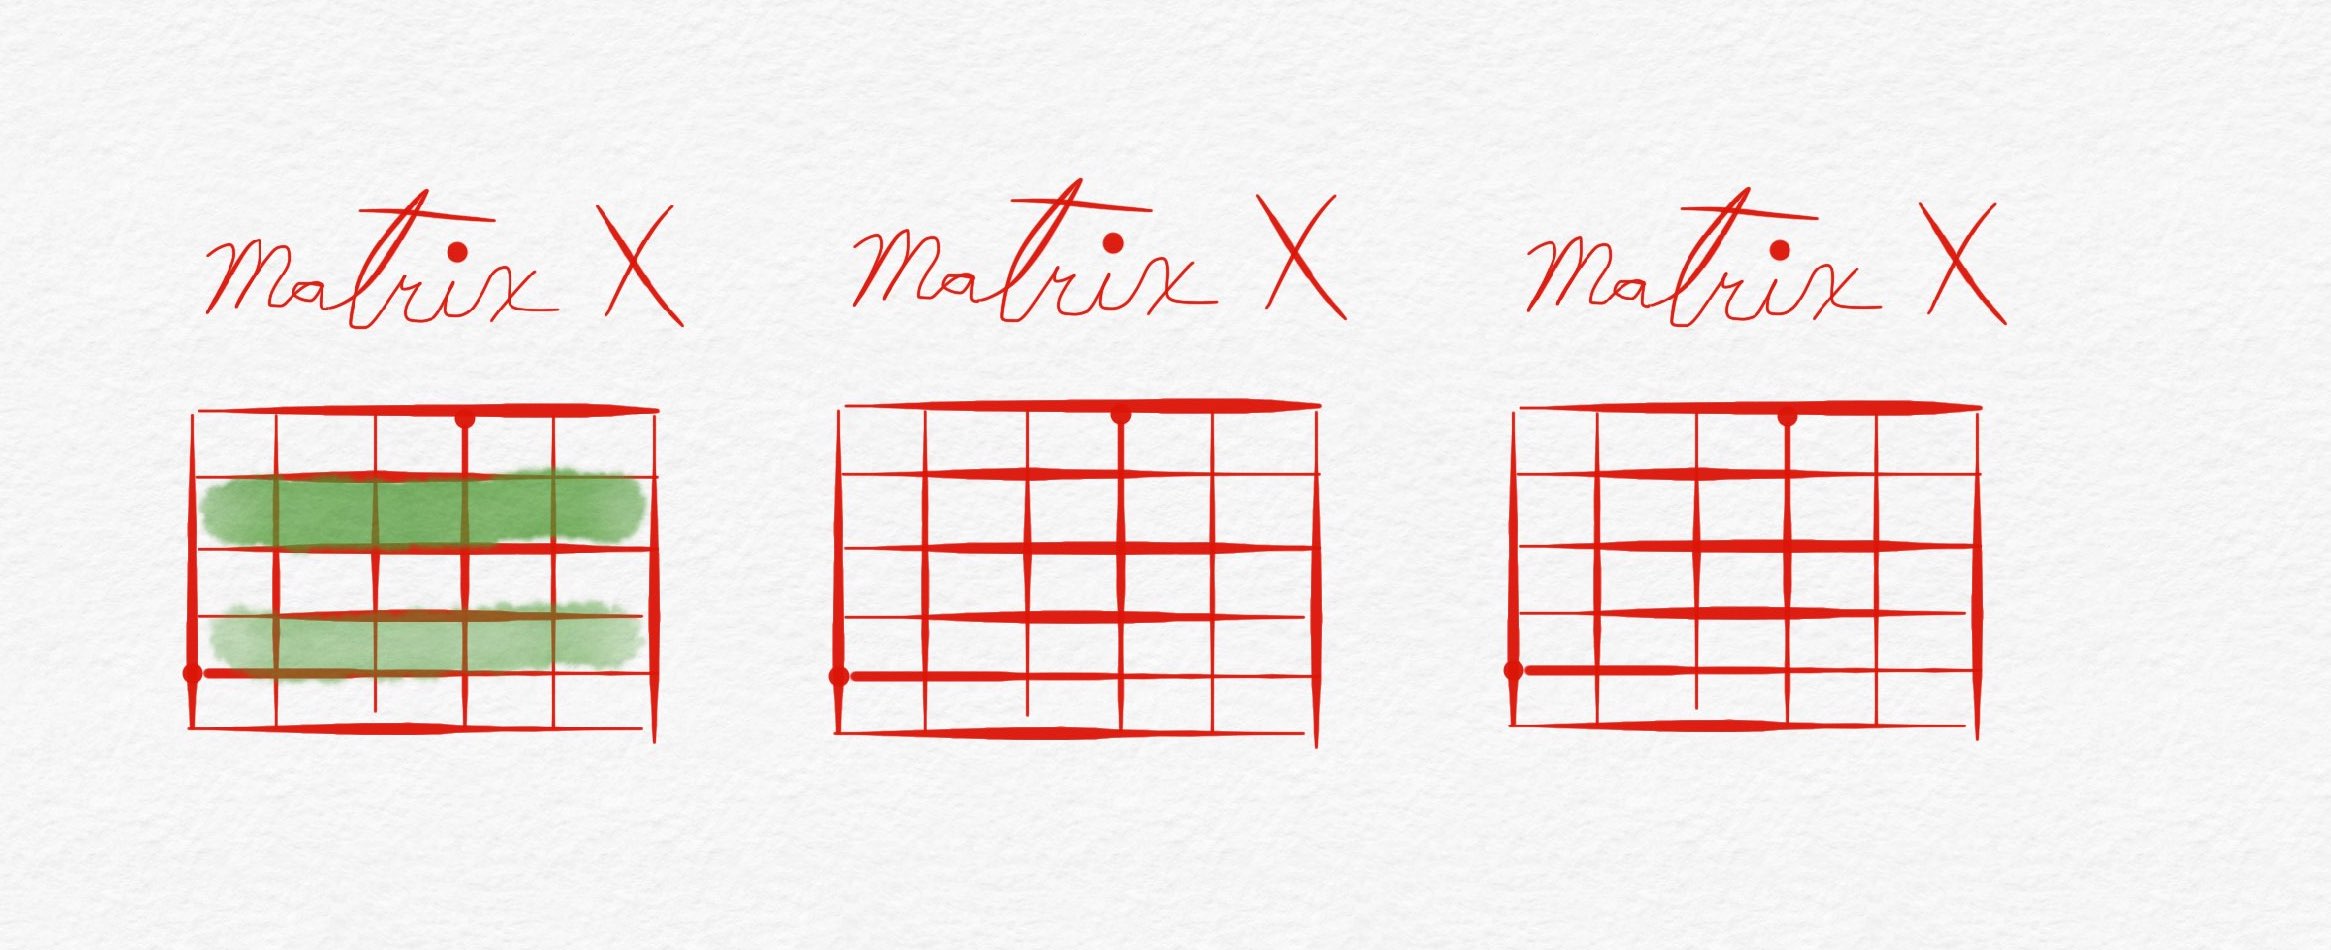 Matrix X
Matrix X
Matrix X